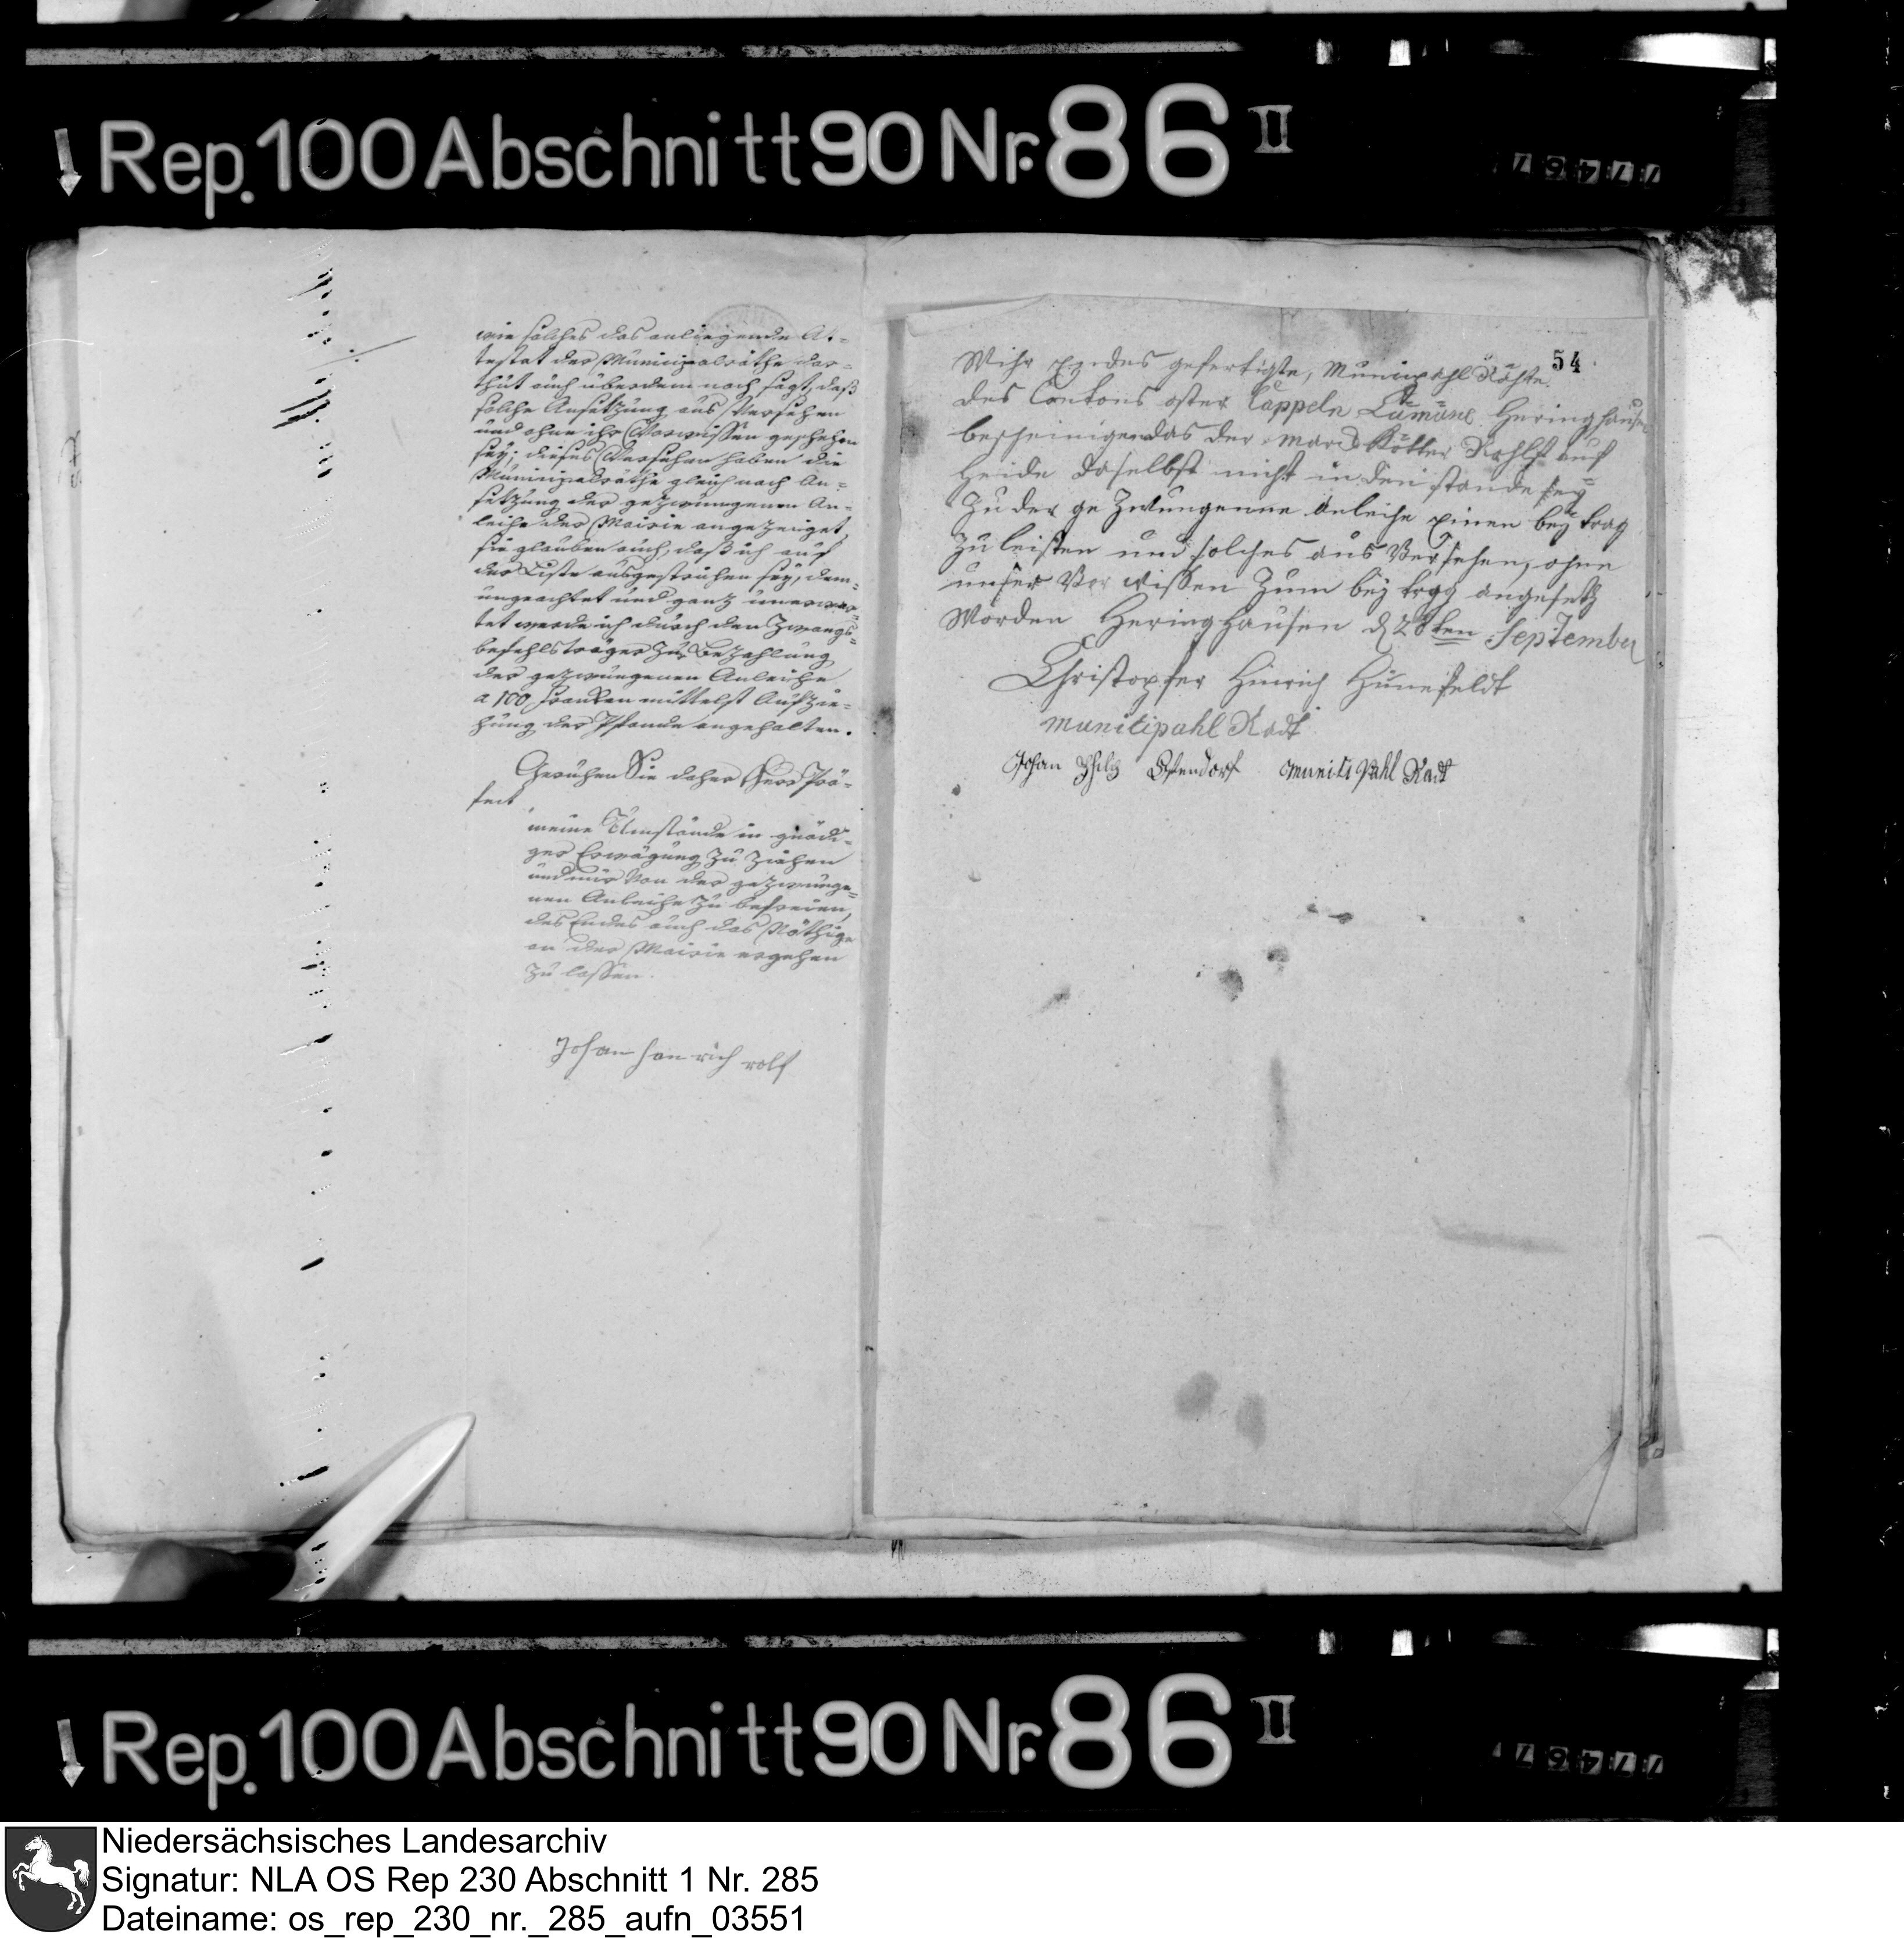 Rep. 100 Abschnitt 90 Nr. 86 II
wie solches das anliegende At-
testat der Municipalräthe dar-
thut auch überdem noch sagt, daß
solche Ansetzung aus Versehen
und ohne ihr Vorwissen geschehen
sey; dieses Versehen haben die
Municipalräthe gleich nach An-
setzung der gezwungenen An-
leihe der Mairie angezeiget,
sie glauben auch, daß ich auf
der Liste ausgestrichen sey; dem-
ungeachtet und ganz unerwar-
tet werde ich durch den Zwangs-
befehlsträger zur Bezahlung
der gezwungenen Anleihe
a 100 Franken mittelst Aufzie-
hung der Pfande angehalten.
Geruhen Sie daher Herr Prä-
fect
meine Umstände in gnädi-
ger Erwägung zu ziehen
und mir von der gezwunge-
nen Anleihe zu befreien,
des Endes auch das Nöthige
an der Mairie ergehen
zu lassen.
Johan Henrich rolf
54
Wihr Endes gefertigte, Municipahl Räthe
des Cantons oster Cappeln Cumüne Heringhausen
bescheinigen das der Marck Kötter Rohlfs auf
Heide daselbst nicht in den stande sey
Zu der ge Zwungenne anleihe einen bey trag
Zu leisten und solches aus Versehen, ohne
unser Vor wissen Zum bey trag angesetz
Worden Heringhausen d 28ten September
Christopfer Hinrich Hünefeldt
municipahl Radt
Johan Philip Ostendorf municipahl Radt
Rep. 100 Abschnitt 90 Nr. 86 II
Niedersächsisches Landesarchiv
Signatur: NLA OS Rep 230 Abschnitt 1 Nr. 285
Dateiname: os_rep_230_nr._285_aufn_03551